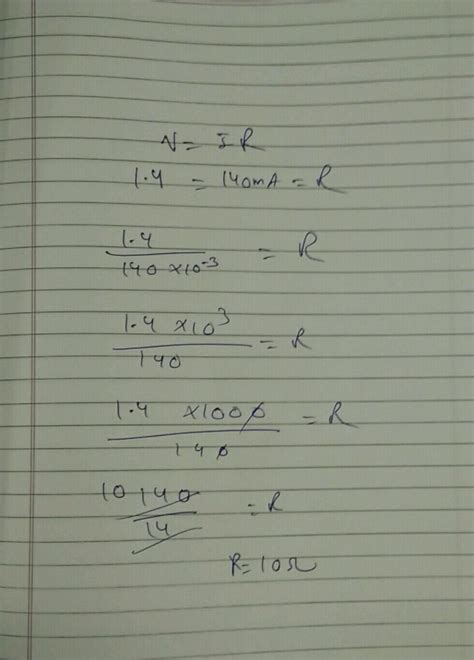 V = IR
1.4 = 140mA = R
1.4 / 140 ×10⁻³ = R
1.4 ×10³ / 140 = R
1.4 ×1000 / 140 = R
10 140 / 14 = R
R = 10Ω